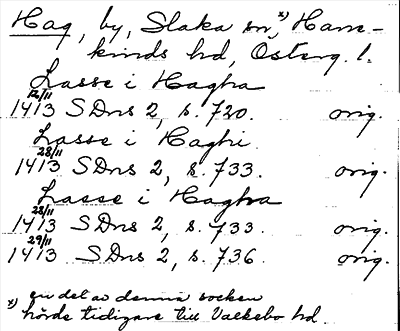 Hag, by, Slaka sn,x) Hane-
kinds hd, Österg. l.
Lasse i Hagha
12/11
1413 SDns 2, s. 720. orig.
Lasse i Haghi
28/11
1413 SDns 2, s. 733. orig.
Lasse i Hagha
28/11
1413 SDns 2, s. 733. orig.
29/11
1413 SDns 2, s. 736. orig.
x) en del av denna socken
hörde tidigare till Valkebo hd.